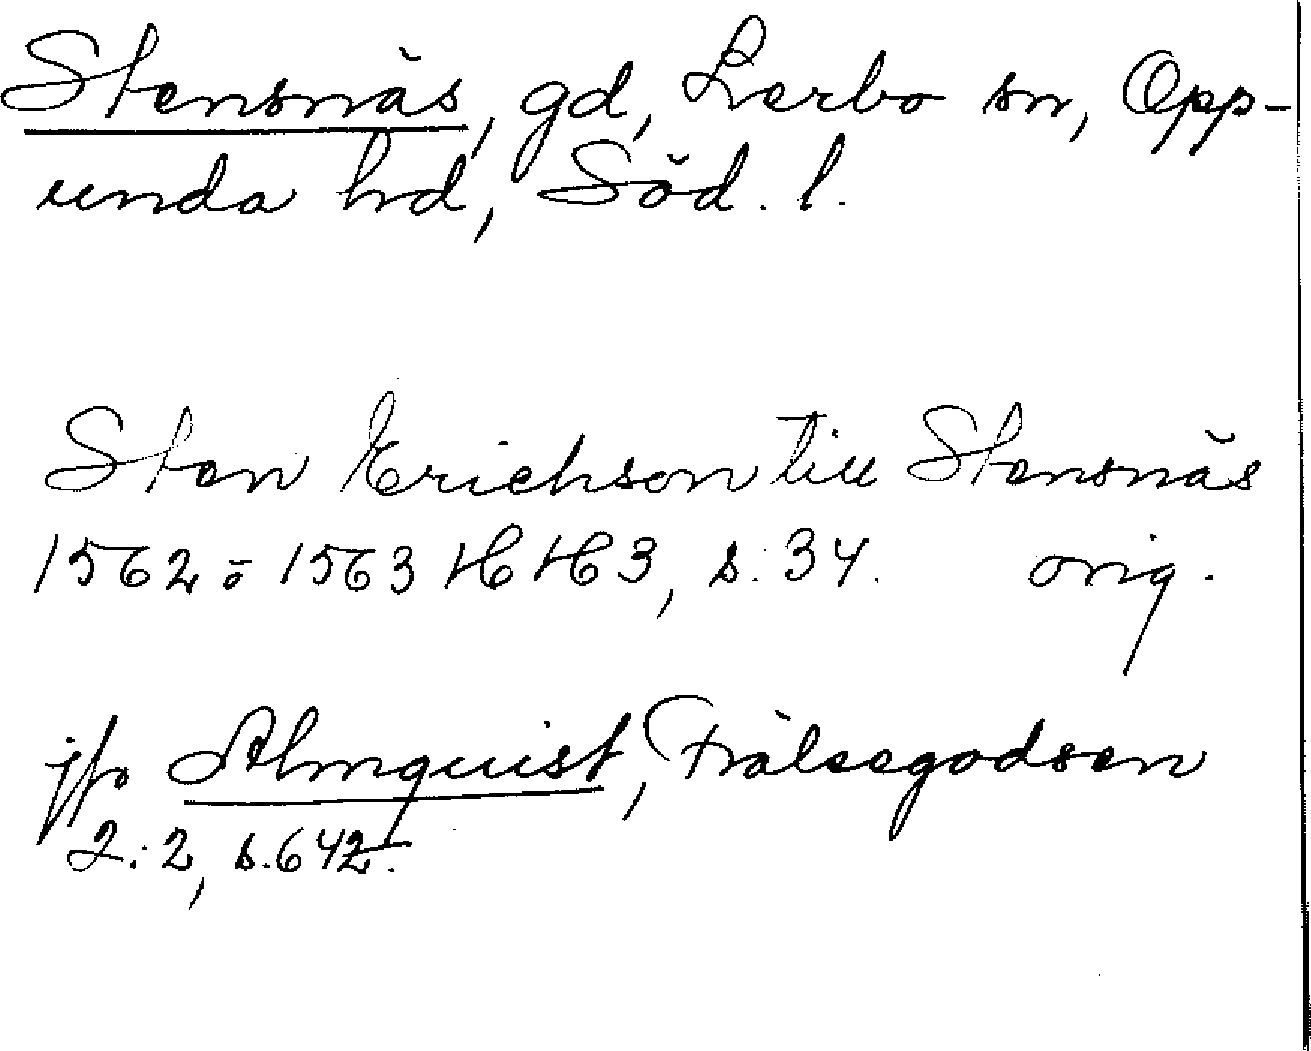 Stensnäs, gd, Lerbo sn, Opp-
unda hd, Söd. l.
Sten Erichson till Stensnäs
1562 o 1563 HH3, s. 34. orig.
jfr Almquist, Frälsegodsen
2:2, s. 642.